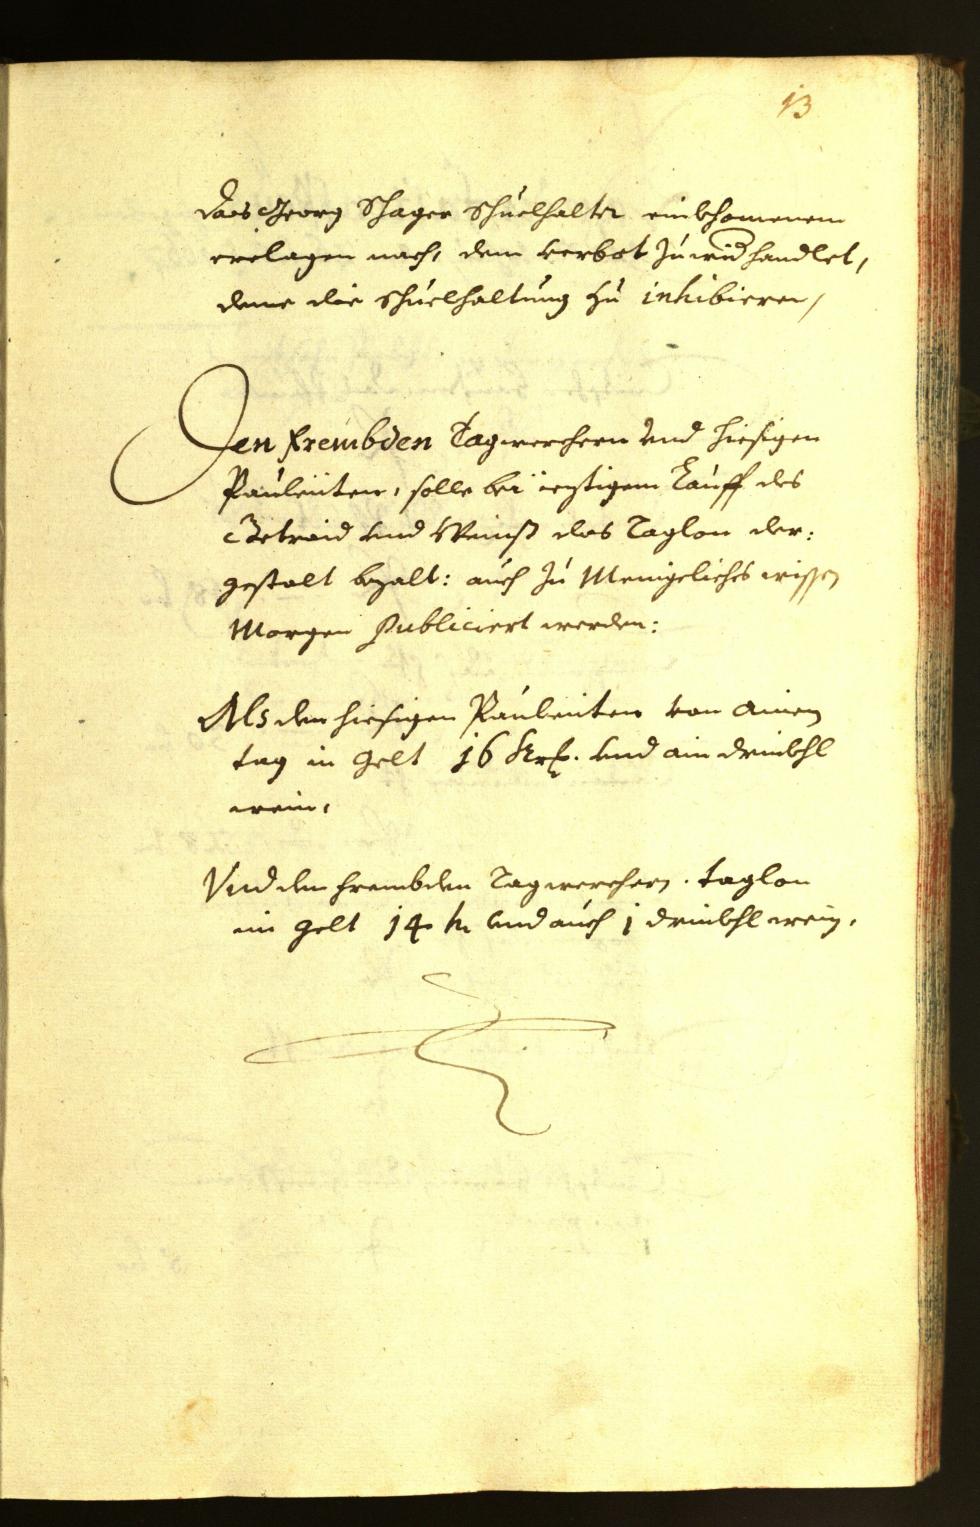 13
Dass Georg Schager Schuelhalter einkhomenem
erclagen nach, dem verbot zuwid handlet,
deme die Schuelhaltung zu inhibieren,
Den frembden Tagwerchern Und hiesigen
Pauleüten, solle beÿ iezigem Kauff des
Getraid und Weinß das Taglon der:
gestalt bezalt: auch zu Menigeliches wissen
Morgen Publiciert werden:
Als den hiesigen Pauleüten von ainem
tag in Gelt 16 kr. und ain drinkhl
wein,
Vnd den frembden Tagwerchern. taglon
in gelt 14 kr und auch 1 drinkhl wein,